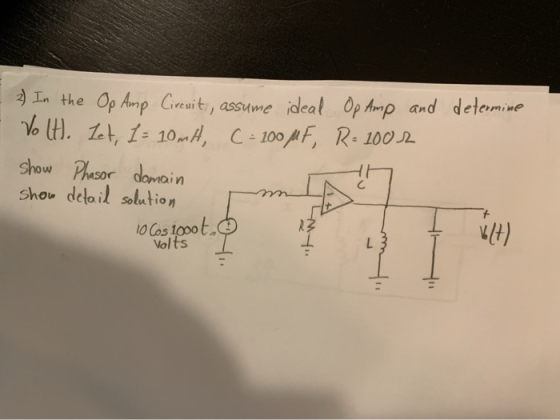 2) In the Op Amp Circuit, assume ideal Op Amp and determine
Vo(t). Let, I = 10mH, C = 100 μF, R = 100 Ω
show Phasor domain
show detail solution
C
10 Cos 1000t
volts
R
L
+
Vo(t)
-
+